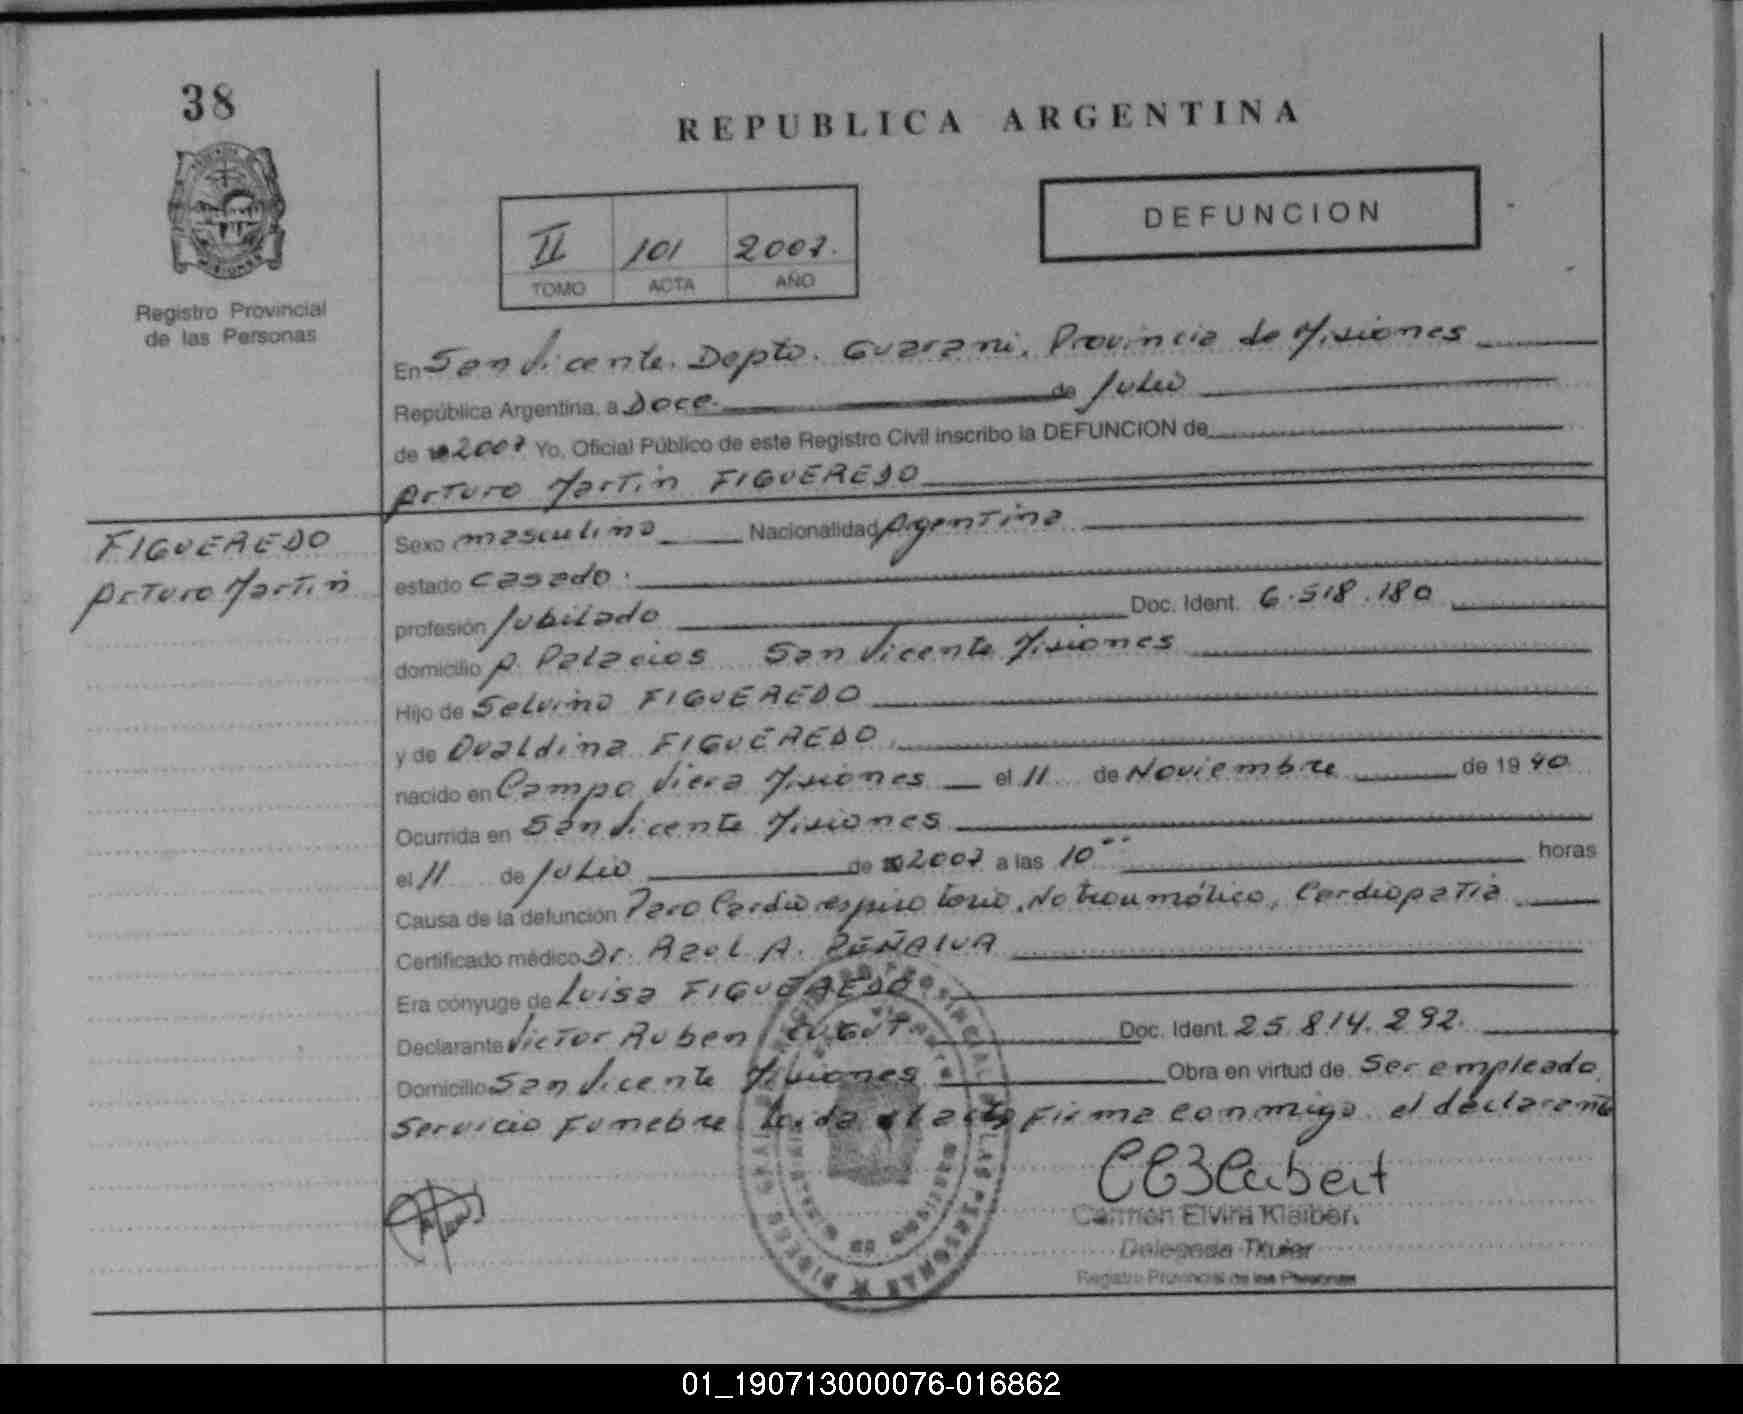 38
REPUBLICA ARGENTINA
DEFUNCION
II 101 2007.
TOMO ACTA AÑO
Registro Provincial
de las Personas
En San Vicente. Depto. Guarani. Provincia de Misiones
República Argentina, a Doce. de Julio
de 2007 Yo, Oficial Público de este Registro Civil inscribo la DEFUNCION de
Arturo Martin FIGUEREDO
FIGUEREDO
Arturo Martin
Sexo masculino Nacionalidad Argentina
estado casado.
profesión Jubilado Doc. Ident. 6.518.180
domicilio A. Palacios San Vicente Misiones
Hijo de Selvino FIGUEREDO
y de Dualdina FIGUEREDO
nacido en Campo Viera Misiones el 11 de Noviembre de 1940
Ocurrida en San Vicente Misiones
el 11 de Julio de 2007 a las 10 horas
Causa de la defunción Paro Cardio respiratorio. No traumático, Cardiopatia
Certificado médico Dr. A. PEÑALVA
Era cónyuge de Luisa FIGUEREDO
Declarante Victor Ruben Doc. Ident. 25.814.292.
Domicilio San Vicente Misiones Obra en virtud de Ser empleado
Servicio Funebre Leida el acta Firma conmigo el declarante
Carmen Elvira Klaiber
Delegada Titular
Registro Provincial de las Personas
01_190713000076-016862